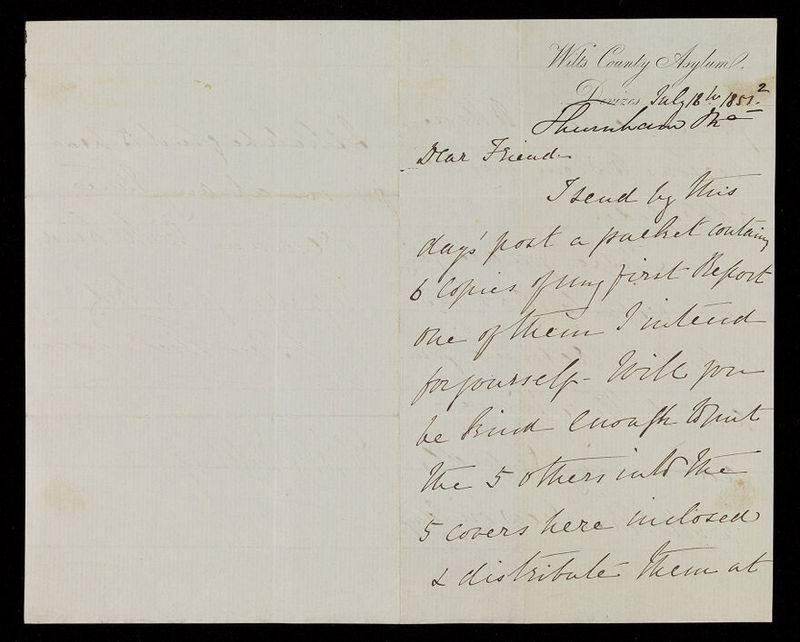 Wilts County Asylum.
Devizes July 18th 1852
Thurnham
Dear Friend
I send by this
day's post a packet containing
6 Copies of my first Report
one of them I intend
for yourself - Will you
be kind enough to put
the 5 others into the
5 covers here inclosed
& distribute them at